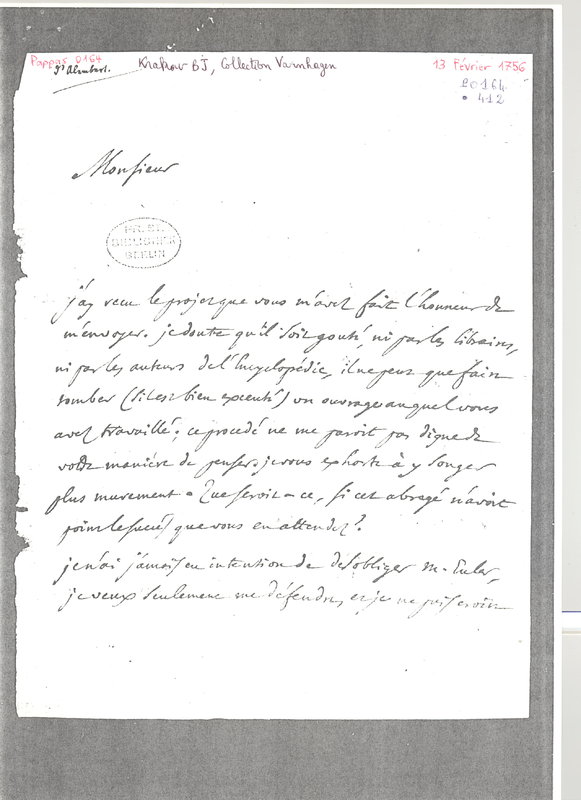 Pappas 0164
d'Alembert.
Krakow BJ, Collection Varnhagen
13 Février 1756
0164
412
Monsieur
BIBLIOTHEK
BERLIN
j'ay recu le projet que vous m'avez fait l'honneur de
m'envoyer. je doute qu'il soit gouté, ni par les libraires,
ni par les auteurs de l'Encyclopédie, il ne peut que faire
tomber (s'il est bien executé) un ouvrage auquel vous
avez travaillé; ce procedé ne me paroit pas digne de
votre maniére de penser. je vous exhorte à y songer
plus murement. Que seroit-ce, si cet abregé n'avoit
point le succés que vous en attendez?
je n'ai jamais eu intention de desobliger M. Euler,
je veux seulement me défendre, et je ne puis croire